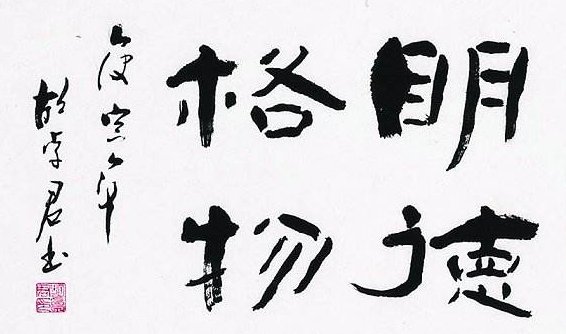 明德
格物
庚寅年
胡君书